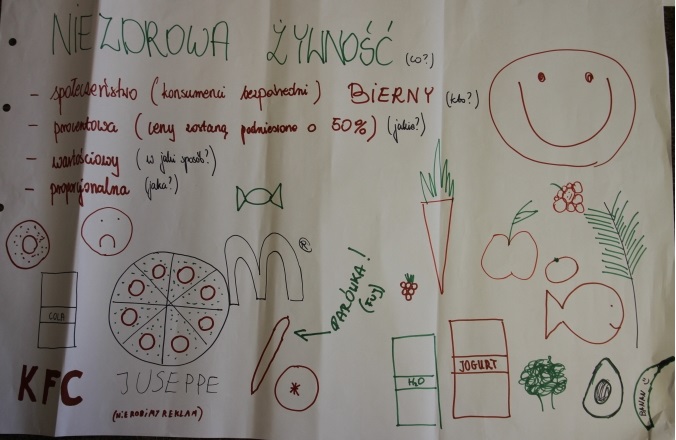 NIEZDROWA ŻYWNOŚĆ (co?)
- społeczeństwo (konsumenci bezpośredni) BIERNY (kto?)
- procentowa (ceny zostaną podniesione o 50%) (jakie?)
- wartościowy (w jaki sposób?)
- proporcjonalna (jaka?)
m ®
PARÓWKA!
(Fuj)
COLA
KFC
JUSEPPE
(NIE ROBIMY REKLAM)
H₂O
JOGURT
BANAN